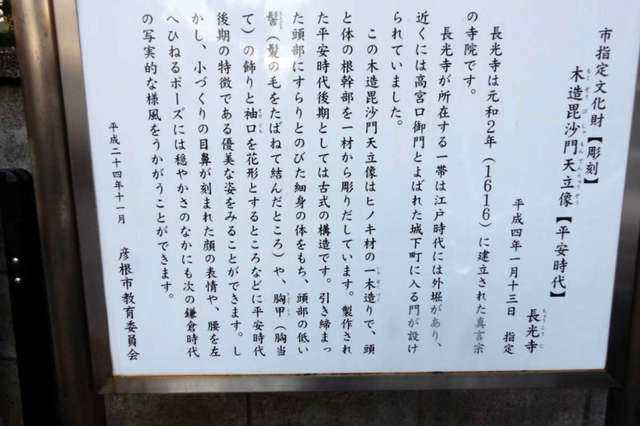 市指定文化財【彫刻】
もくぞうびしゃもんてんりゅうぞう
木造毘沙門天立像【平安時代】
ちょうこうじ
長光寺
平成四年一月十三日 指定
長光寺は元和2年(1616)に建立された真言宗
の寺院です。
長光寺が所在する一帯は江戸時代には外堀があり、
近くには高宮口御門とよばれた城下町に入る門が設け
られていました。
この木造毘沙門天立像はヒノキ材の一木造りで、頭
と体の根幹部を一材から彫りだしています。製作され
た平安時代後期としては古式の構造です。引き締まっ
た頭部にすらりとのびた細身の体をもち、頭部の低い
髻(髪の毛をたばねて結んだところ)や、胸甲(胸当
て)の飾りと袖口を花形とするところなどに平安時代
後期の特徴である優美な姿をみることができます。し
かし、小づくりの目鼻が刻まれた顔の表情や、腰を左
へひねるポーズには穏やかさのなかにも次の鎌倉時代
の写実的な様風をうかがうことができます。
平成二十四年十一月 彦根市教育委員会